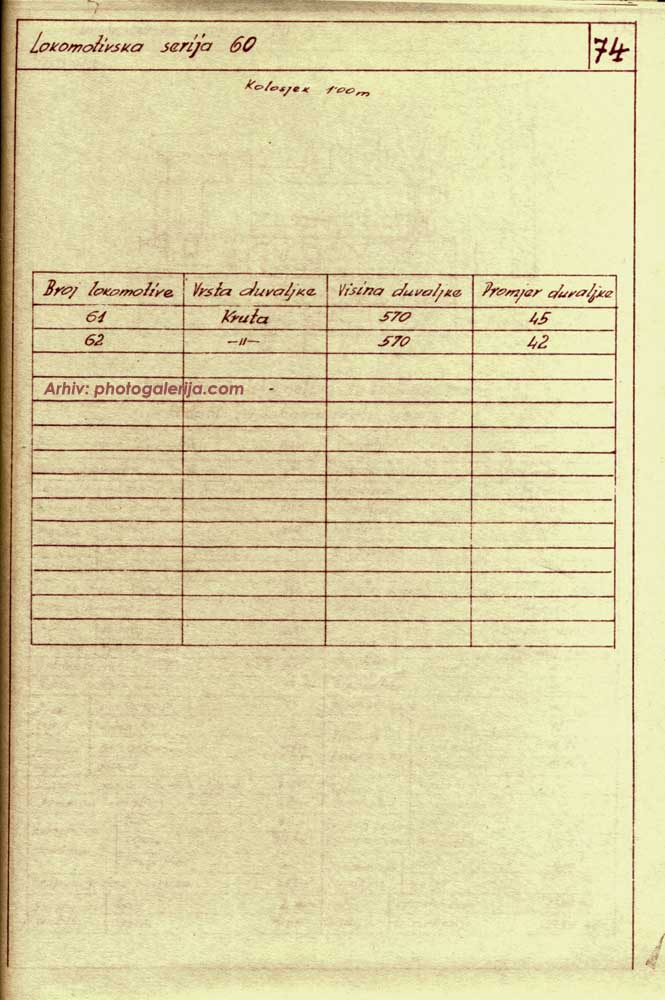 Lokomotivska serija 60
74
Kolosjek 1'00m
Broj lokomotive Vrsta duvaljke Visina duvaljke Promjer duvaljke
61 Kruta 570 45
62 -〃- 570 42
Arhiv: photogalerija.com